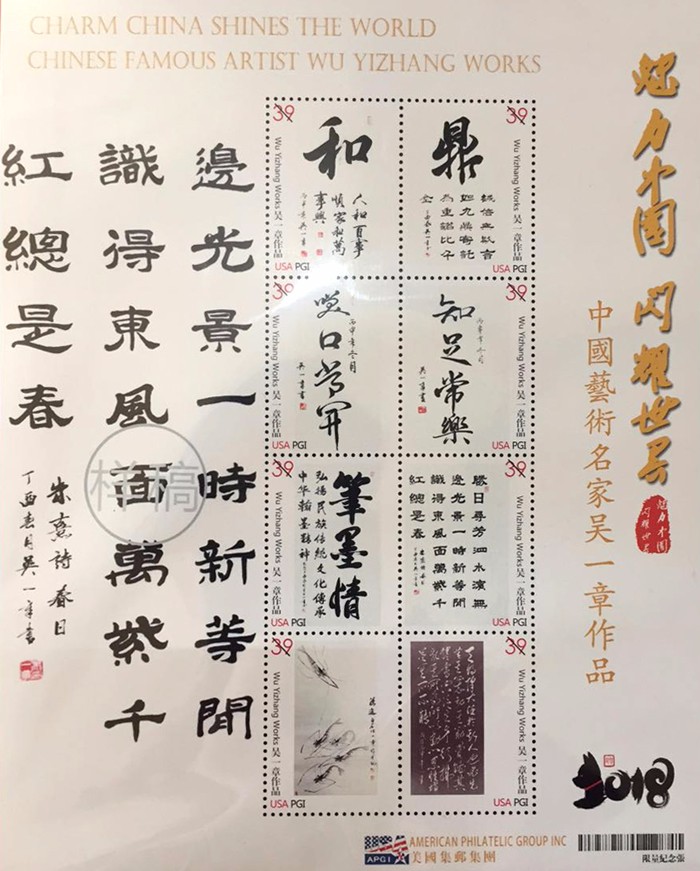 CHARM CHINA SHINES THE WORLD
CHINESE FAMOUS ARTIST WU YIZHANG WORKS
魅力中国 闪耀世界
中國藝術名家吴一章作品
魅力中国
闪耀世界
邊光景一時新等閒
識得東風面萬紫千
紅總是春
朱熹詩春日
丁酉春月吴一章書
样稿
39
和
人和百事
順家和萬
事興
Wu Yizhang Works 吴一章作品
USA PGI
39
鼎
Wu Yizhang Works 吴一章作品
USA PGI
39
笑口常开
Wu Yizhang Works 吴一章作品
USA PGI
39
知足常樂
吴一章書
Wu Yizhang Works 吴一章作品
USA PGI
39
筆墨情
弘揚民族傳統文化傳承
中华翰墨精神
Wu Yizhang Works 吴一章作品
USA PGI
39
勝日尋芳泗水濱無
邊光景一時新等閒
識得東風面萬紫千
紅總是春
Wu Yizhang Works 吴一章作品
USA PGI
39
Wu Yizhang Works 吴一章作品
USA PGI
39
Wu Yizhang Works 吴一章作品
USA PGI
2018
APGI
AMERICAN PHILATELIC GROUP INC
美國集郵集團
限量紀念張